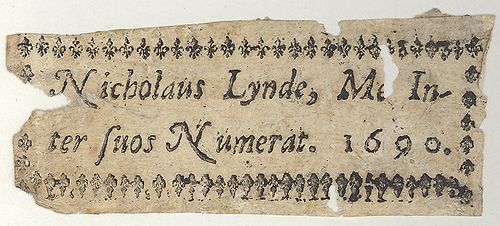 Nicholaus Lynde, Me In-
ter ſuos Numerat. 1690.